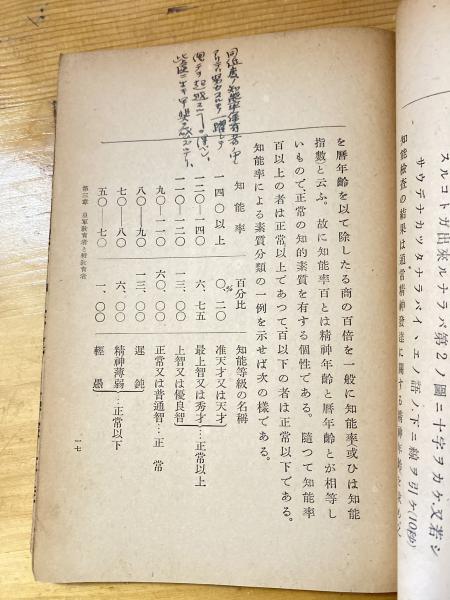 スルコトガ出來ルナラバ第2ノ圖ニ十字ヲカケ又若シ
サウデナカツタナラバイヽエノ語ノ下ニ線ヲ引ケ(10秒)
知能檢查の結果は通常精神發達に關する精神年齡
を曆年齡を以て除したる商の百倍を一般に知能率或ひは知能
指數と云ふ。故に知能率百とは精神年齡と曆年齡とが相等し
いもので、正常の知的素質を有する個性である。隨つて知能率
百以上の者は正常以上であつて、百以下の者は正常以下である。
知能率による素質分類の一例を示せば次の樣である。
同程度ノ知能率保有者ノ中
知能率 百分比 知能等級の名稱
一四〇以上 〇、二〇% 準天才又は天才
一二〇―一四〇 六、七五 最上智又は秀才…正常以上
一一〇―一二〇 一三、〇〇 上智又は優良智
九〇―一一〇 六〇、〇〇 正常又は普通智…正常
八〇―九〇 一三、〇〇 遲鈍
七〇―八〇 六、〇〇 精神薄弱…正常以下
五〇―七〇 一、〇〇 輕愚
第三章 皇軍教育者と被教育者 一七